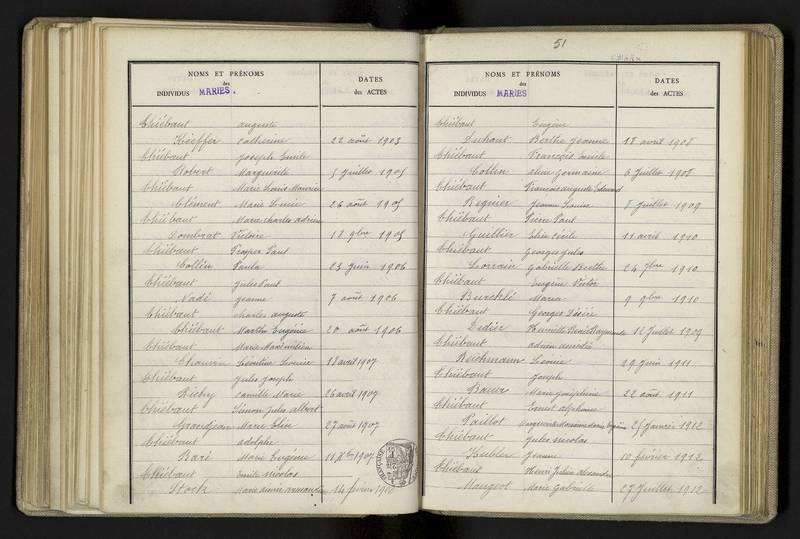 NOMS ET PRÉNOMS
des
INDIVIDUS MARIES.
DATES
des ACTES
Thiébaut auguste
Kieffer Catherine 22 août 1905
Thiébaut Joseph Emile
Robert Marguerite 5 Juillet 1905
Thiébaut Marie Louis Maurice
Clément Marie Lucie 26 août 1905
Thiébaut Marie Charles adrien
Dombrat Victoire 18 9bre 1905
Thiébaut Prosper Paul
Collin Paula 23 Juin 1906
Thiébaut Jules Paul
Nadé Jeanne 7 août 1906
Thiébaut Charles auguste
Thiébaut Marthe Eugénie 20 août 1906
Thiébaut Marie Maximilien
Chauvin Léontine Louise 18 avril 1907
Thiébaut Jules Joseph
Richy Camille Marie 26 avril 1907
Thiébaut Simon Jules albert
Grandjean Marie Elin 27 août 1907
Thiébaut adolphe
Baré Marie Eugénie 1907
Thiébaut Emile Nicolas
Stock Marie 14 février
51
NOMS ET PRÉNOMS
des
INDIVIDUS MARIES
DATES
des ACTES
Thiébaut Eugène
Duhaut Berthe Jeanne 18 avril 1908
Thiébaut François Emile
Collin aline Germaine 6 Juillet 1908
Thiébaut François auguste Edmond
Regnier Jeanne Louise 8 Juillet 1909
Thiébaut Pierre Paul
Guillier Elise Cécile 11 avril 1910
Thiébaut Georges Jules
Lorrain Gabrielle Berthe 24 7bre 1910
Thiébaut Eugène Victor
Burcklé Maria 9 9bre 1910
Thiébaut Georges Désiré
Didier Henriette 12 Juillet 1909
Thiébaut adrien amédée
Reichmann Léonie 29 Juin 1911
Thiébaut Joseph
Bauer Marie Joséphine 22 août 1911
Thiébaut Ernest alphonse
Paillot Marguerite 25 Janvier 1912
Thiébaut Jules Nicolas
Hubler Jeanne 10 février 1912
Thiébaut Henri Julien Alexandre
Mangeot Marie Gabrielle 27 Juillet 1912